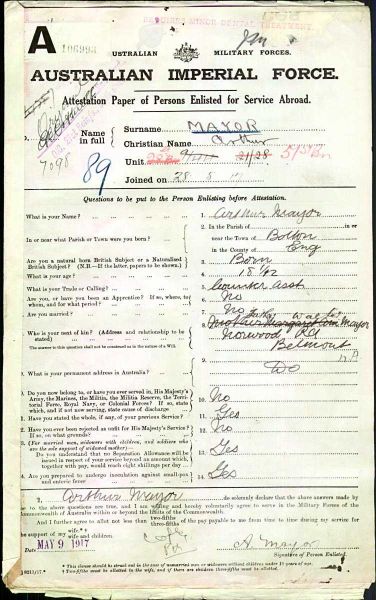 A 106993
REQUIRES MINOR DENTAL TREATMENT
AUSTRALIAN MILITARY FORCES.
AUSTRALIAN IMPERIAL FORCE.
Attestation Paper of Persons Enlisted for Service Abroad.
7098
89
Name in full
Surname MAYOR
Christian Name Arthur
Unit 21/28 51st Bn
Joined on 28 5
Questions to be put to the Person Enlisting before Attestation.
What is your Name? 1. Arthur Mayor
In or near what Parish or Town were you born? 2. In the Parish of in or
near the Town of Bolton
in the County of Eng
Are you a natural born British Subject or a Naturalised British Subject? (N.B.—If the latter, papers to be shown). 3. Born
What is your age? 4. 18
What is your Trade or Calling? 5. Counter Asst
Are you, or have you been an Apprentice? If so, where, to whom, and for what period? 6. No
Are you married? 7. No
Who is your next of kin? (Address and relationship to be stated) 8. Mother Margaret Ann Mayor
Norwood Rd
Belmont
The answer to this question shall not be considered as in the nature of a Will.
What is your permanent address in Australia? 9. Do
Do you now belong to, or have you ever served in, His Majesty's Army, the Marines, the Militia, the Militia Reserve, the Territorial Force, Royal Navy, or Colonial Forces? If so, state which, and if not now serving, state cause of discharge 10. No
Have you stated the whole, if any, of your previous Service? 11. Yes
Have you ever been rejected as unfit for His Majesty's Service? If so, on what grounds? 12. No
(For married men, widowers with children, and soldiers who are the sole support of widowed mother)—
Do you understand that no Separation Allowance will be issued in respect of your service beyond an amount which, together with pay, would reach eight shillings per day 13. Yes
Are you prepared to undergo inoculation against small-pox and enteric fever 14. Yes
I, Arthur Mayor do solemnly declare that the above answers made by
me to the above questions are true, and I am willing and hereby voluntarily agree to serve in the Military Forces of the
Commonwealth of Australia within or beyond the limits of the Commonwealth.
And I further agree to allot not less than two-fifths three-fifths of the pay payable to me from time to time during my service for
the support of my wife.* wife and children.
Date MAY 9 1917
A. Mayor
Signature of Person Enlisted.
*This clause should be struck out in case of unmarried men or widowers without children under 18 years of age.
Two-fifths must be allotted to the wife, and if there are children three-fifths must be allotted.